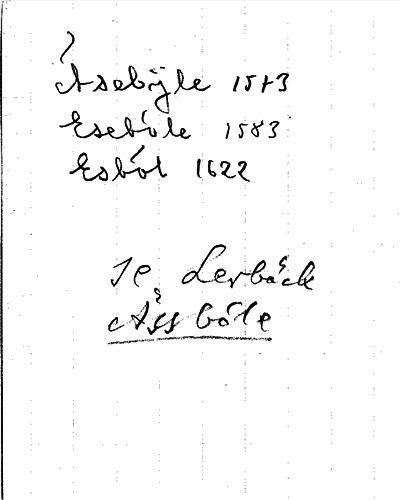 Åsebÿle 1573
Eseböle 1583
Esböl 1622
se Lerbäck
Åssböle